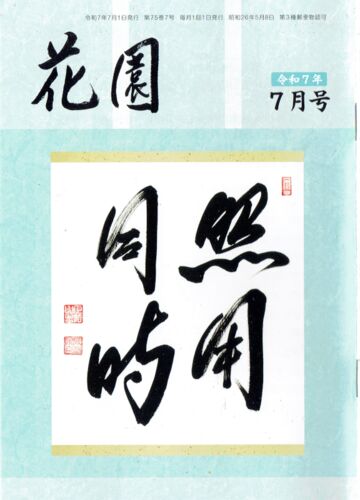 令和7年7月1日発行 第75巻7号 毎月1回1日発行 昭和26年5月8日 第3種郵便物認可
花園
令和7年
7月号
照用
同時